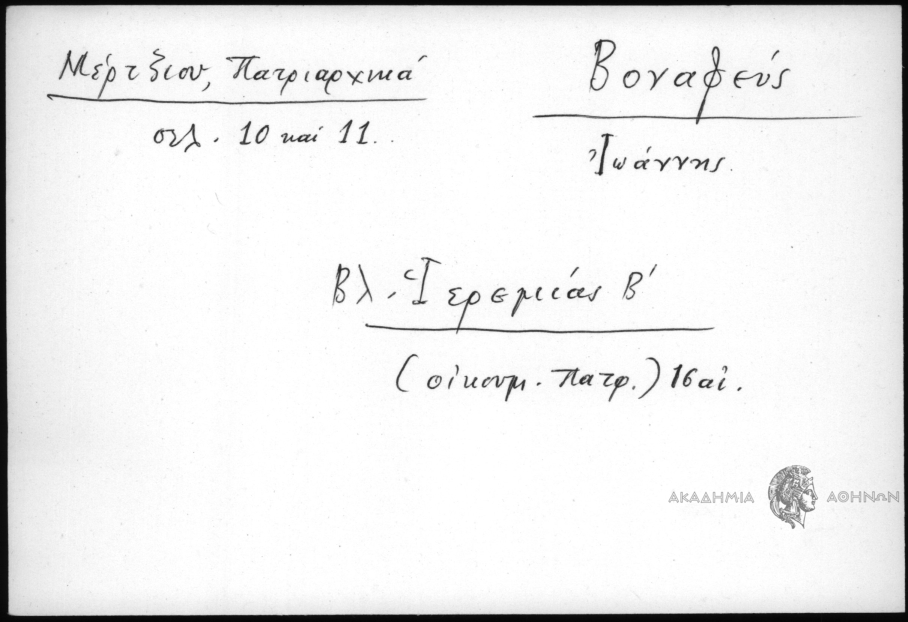 Μέρτζιου, Πατριαρχικά
σελ. 10 καί 11..
Βοναφεύς
Ἰωάννης.
Βλ. Ἱερεμίας Β'
(οἰκουμ. Πατρ.) 16 αἰ.
ΑΚΑΔΗΜΙΑ ΑΘΗΝΩΝ